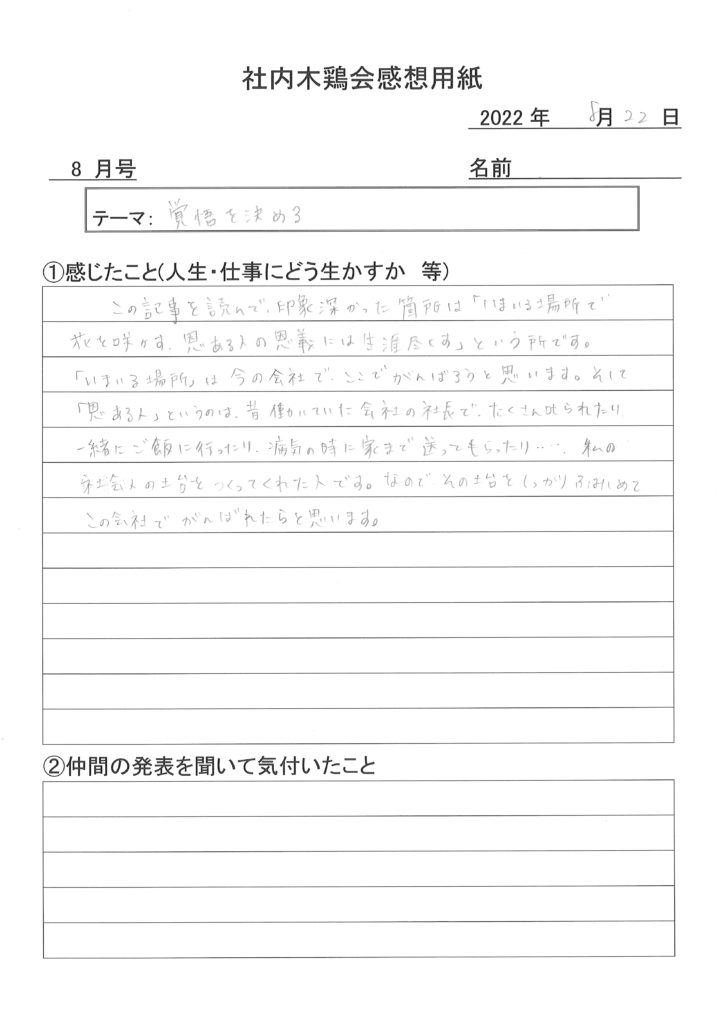 社内木鶏会感想用紙
2022 年 8月 22 日
8 月号 名前
テーマ: 覚悟を決める
①感じたこと(人生・仕事にどう生かすか 等)
この記事を読んで、印象深かった箇所は「いまいる場所で
花を咲かす、恩ある人の恩義には生涯尽くす」という所です。
「いまいる場所」は今の会社で、ここでがんばろうと思います。そして
「恩ある人」というのは、昔働いていた会社の社長で、たくさん叱られたり
一緒にご飯に行ったり、病気の時に家まで送ってもらったり…、私の
社会人の土台をつくってくれた人です。なので、その土台をしっかりふみしめて
この会社でがんばれたらと思います。
②仲間の発表を聞いて気付いたこと